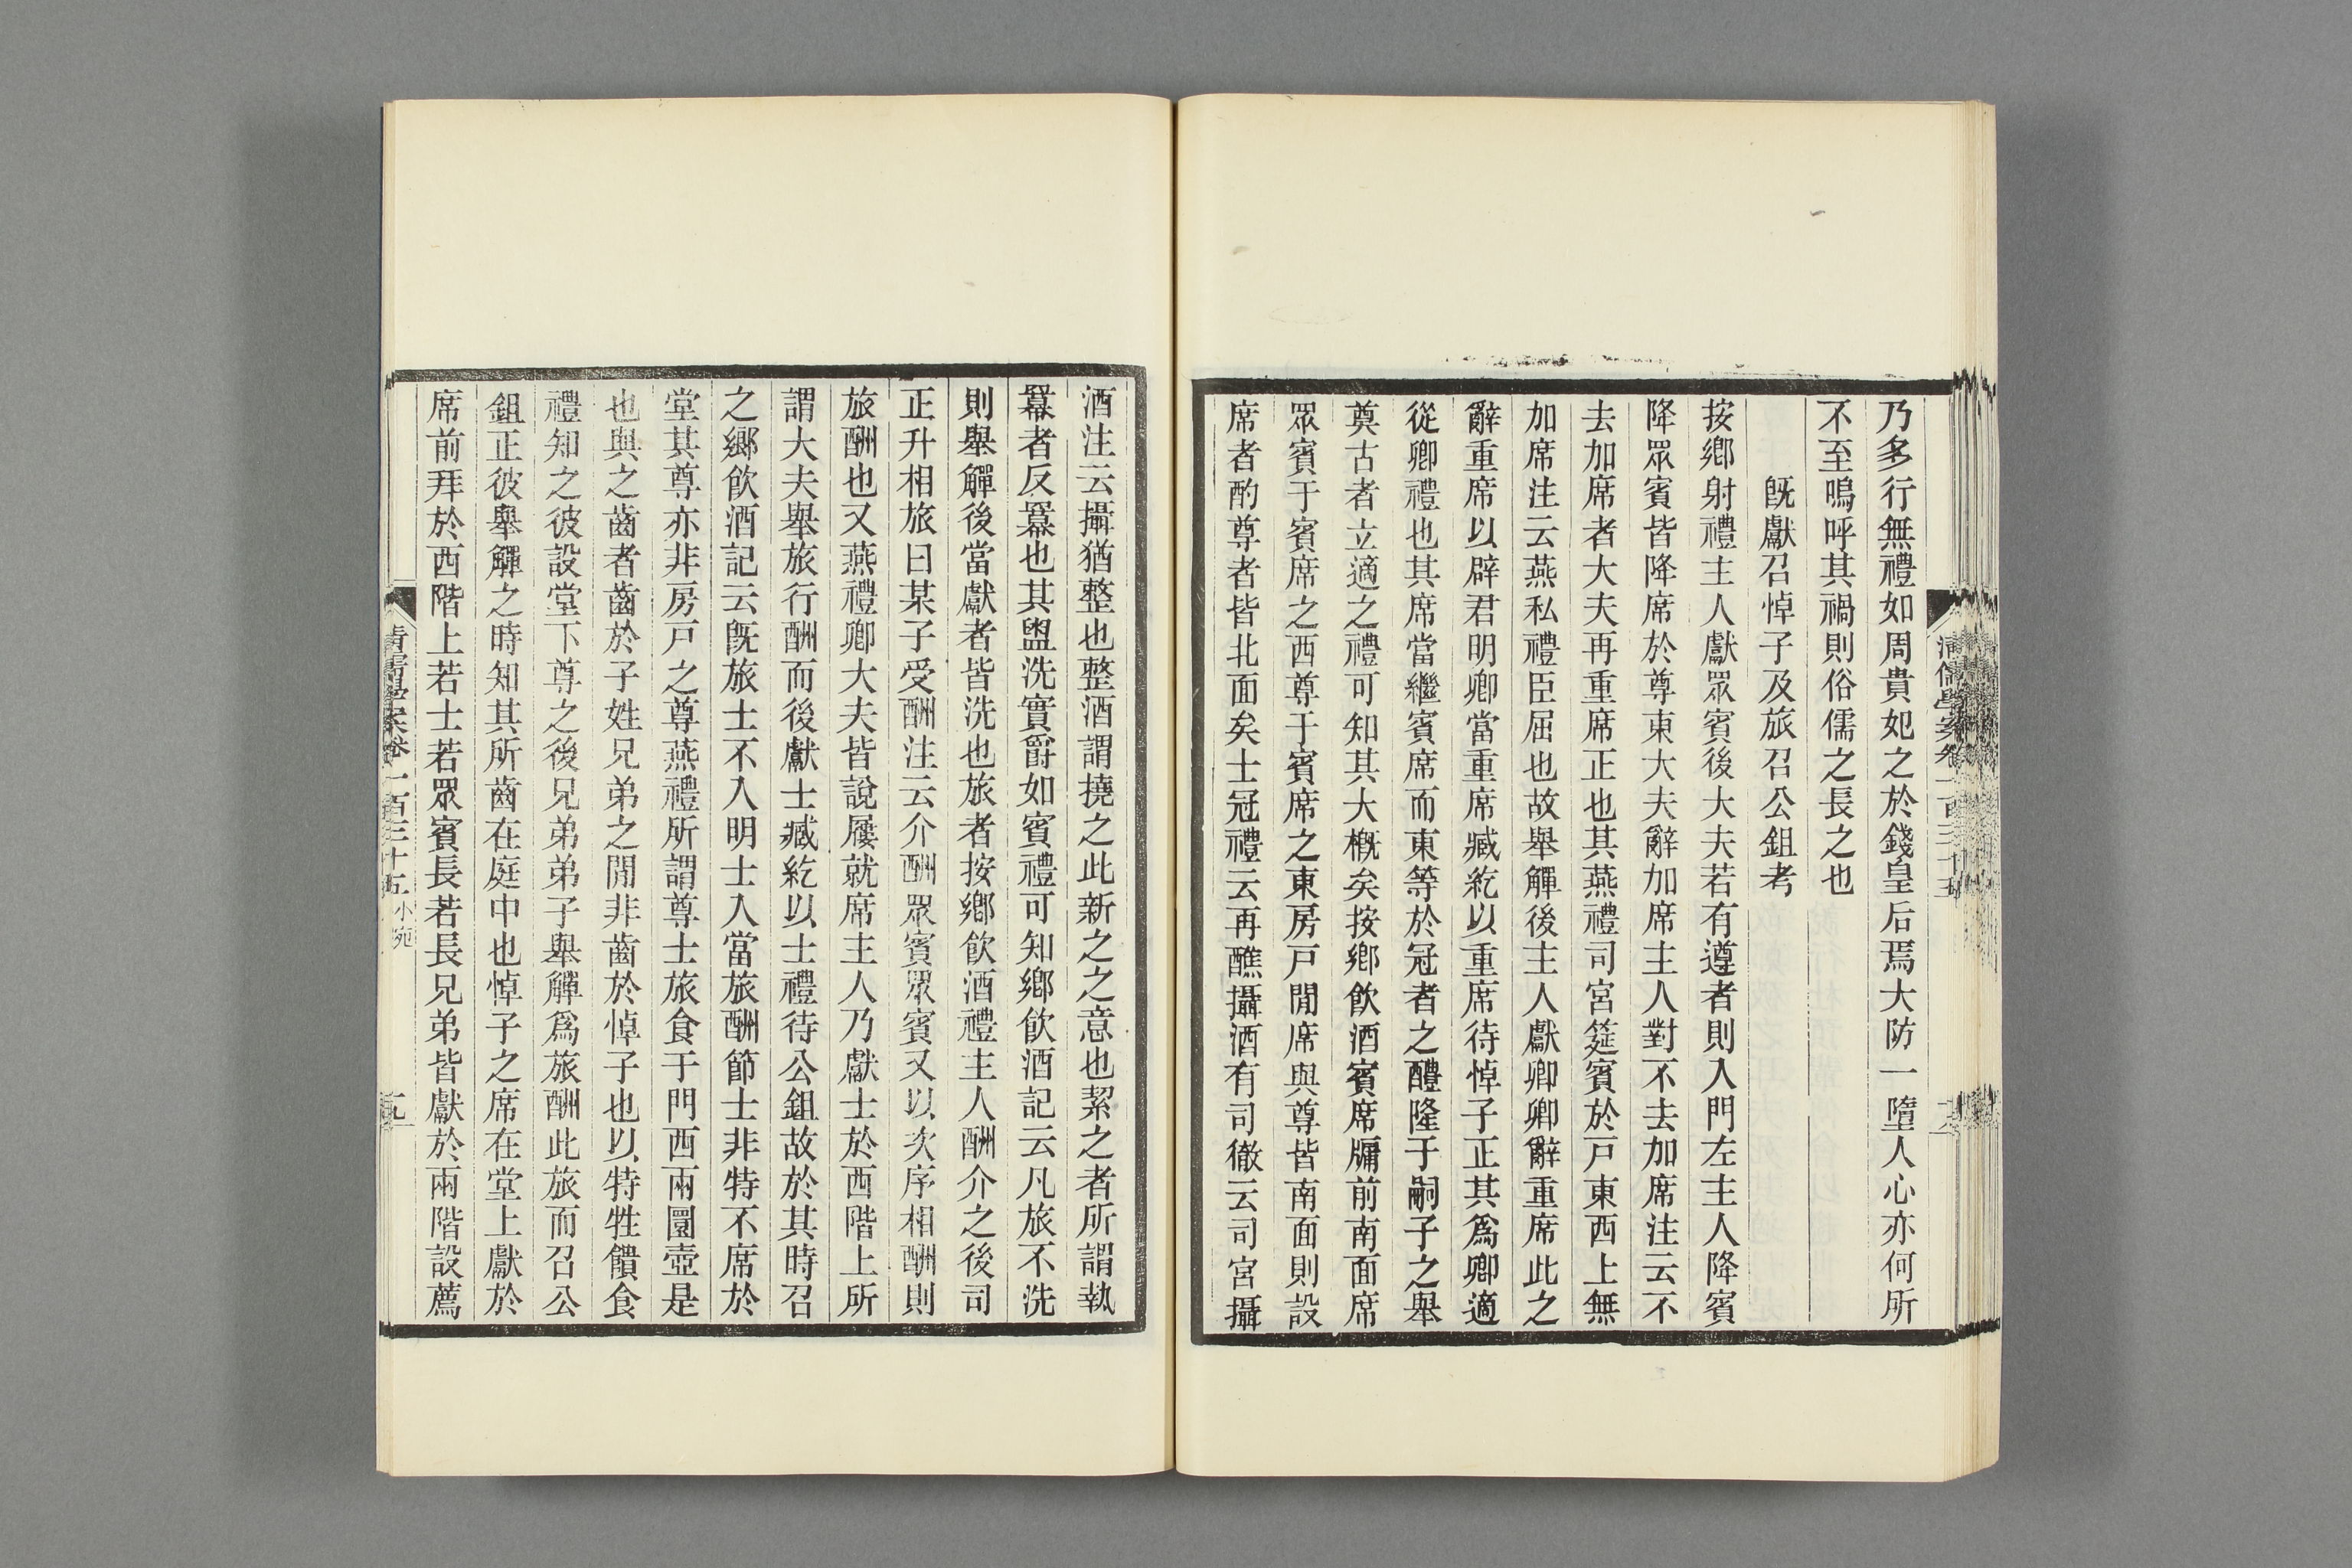 乃多行無禮如周貴妃之於錢皇后焉大防一墮人心亦何所
不至嗚呼其禍則俗儒之長之也
旣獻召悼子及旅召公鉏考
按鄉射禮主人獻眾賓後大夫若有遵者則入門左主人降賓
降眾賓皆降席於尊東大夫辭加席主人對不去加席注云不
去加席者大夫再重席正也其燕禮司宮筵賓於戸東西上無
加席注云燕私禮臣屈也故舉觶後主人獻卿卿辭重席此之
辭重席以辟君明卿當重席臧紇以重席待悼子正其爲卿適
從卿禮也其席當繼賓席而東等於冠者之醴隆于嗣子之舉
奠古者立適之禮可知其大槪矣按鄉飲酒賓席牖前南面席
眾賓于賓席之西尊于賓席之東房戸閒席與尊皆南面則設
席者酌尊者皆北面矣士冠禮云再醮攝酒有司徹云司宮攝
酒注云攝猶整也整酒謂撓之此新之之意也絜之者所謂執
冪者反冪也其盥洗實爵如賓禮可知鄉飲酒記云凡旅不洗
則舉觶後當獻者皆洗也旅者按鄉飲酒禮主人酬介之後司
正升相旅曰某子受酬注云介酬眾賓眾賓又以次序相酬則
旅酬也又燕禮卿大夫皆說屨就席主人乃獻士於西階上所
謂大夫舉旅行酬而後獻士臧紇以士禮待公鉏故於其時召
之鄉飲酒記云旣旅士不入明士入當旅酬節士非特不席於
堂其尊亦非房戸之尊燕禮所謂尊士旅食于門西兩圜壺是
也與之齒者齒於子姓兄弟之閒非齒於悼子也以特牲饋食
禮知之彼設堂下尊之後兄弟弟子舉觶爲旅酬此旅而召公
鉏正彼舉觶之時知其所齒在庭中也悼子之席在堂上獻於
席前拜於西階上若士若眾賓長若長兄弟皆獻於兩階設薦
清儒學案卷一百三十五 小宛